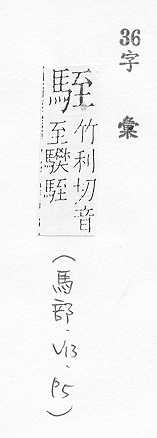 36
字彙
駤
竹利切音
至駤
(馬部·V13·P5)